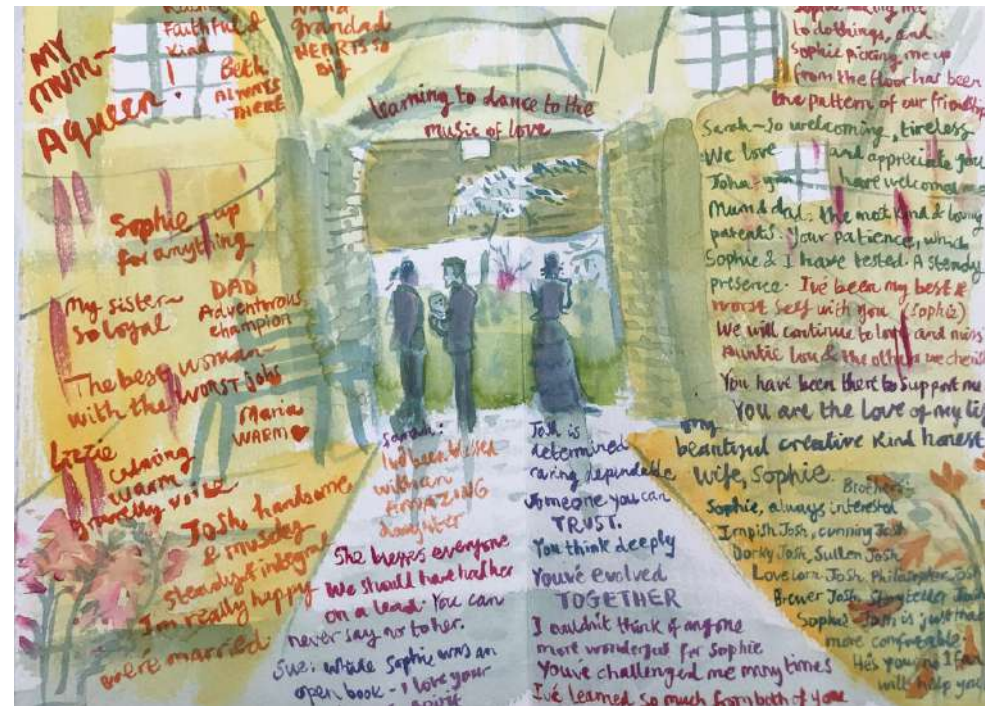 MY
MUM~
A queen!
Faithful &
Kind
!
Beth
ALWAYS
THERE
Grandad
HEARTS SO
BIG
learning to dance to the
music of love
Sophie ~ up
for anything
My sister~
so loyal
DAD
Adventurous
champion
The best woman~
with the WORST jobs
Maria
WARM
Lizzie
calming
warm
gravelly voice
Josh, handsome
& muscley
steady & integral
I'm really happy
we're married.
Sarah:
I've been blessed
with an
AMAZING
daughter
She kisses everyone
We should have had her
on a lead. You can
never say no to her.
Suzi: while Sophie was an
open book - I love your
spirit
Josh is
determined
caring dependable
someone you can
TRUST.
You think deeply
You've evolved
TOGETHER
I couldn't think of anyone
more wonderful for Sophie
You've challenged me many times
I've learned so much from both of you
to do things, and
Sophie picking me up
from the floor has been
the pattern of our friendship
Sarah~so welcoming, tireless
We love and appreciate you
John - you have welcomed me
Mum & dad: the most kind & loving
parents. Your patience, which
Sophie & I have tested. A steady
presence. I've been my best &
worst self with you (Sophie)
We will continue to love and miss
auntie Lou & the others we cherish
You have been there to support me
You are the love of my life
my
beautiful creative kind honest
wife, Sophie.
Brothers:
Sophie, always interested
Impish Josh, cunning Josh
Dorky Josh, Sullen Josh
Lovelorn Josh. Philosopher Josh
Brewer Josh, Storyteller Josh
Sophie - Josh is just that
more comfortable.
He's you, and I
will help you